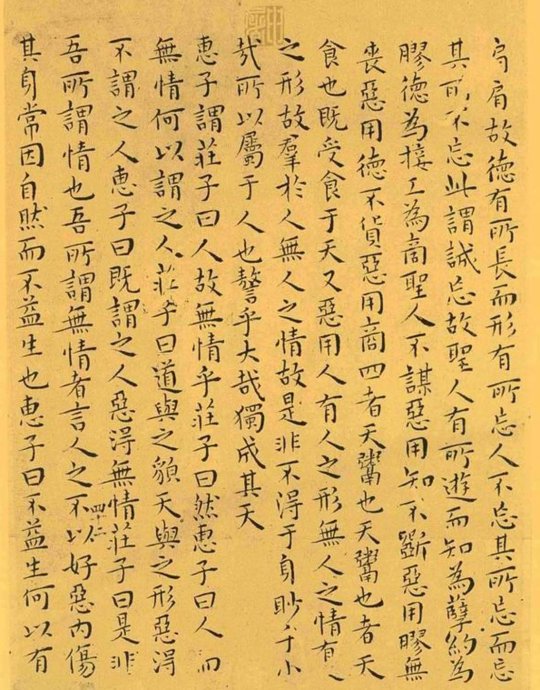 肩肩故德有所長而形有所忘人不忘其所忘而忘
其所不忘此謂誠忘故聖人有所遊而知為孽約為
膠德為接工為商聖人不謀惡用知不斲惡用膠無
喪惡用德不貨惡用商四者天鬻也天鬻也者天
食也既受食于天又惡用人有人之形無人之情有人
之形故羣於人無人之情故是非不得于身眇乎小
哉所以屬于人也謷乎大哉獨成其天
惠子謂莊子曰人故無情乎莊子曰然惠子曰人而
無情何以謂之人莊子曰道與之貌天與之形惡得
不謂之人惠子曰既謂之人惡得無情莊子曰是非
吾所謂情也吾所謂無情者言人之不以好惡內傷
其身常因自然而不益生也惠子曰不益生何以有